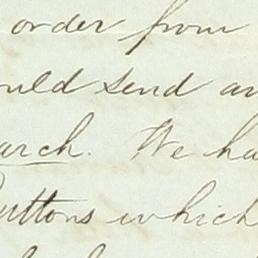 order from
ould send an
arch. We ha
Buttons which